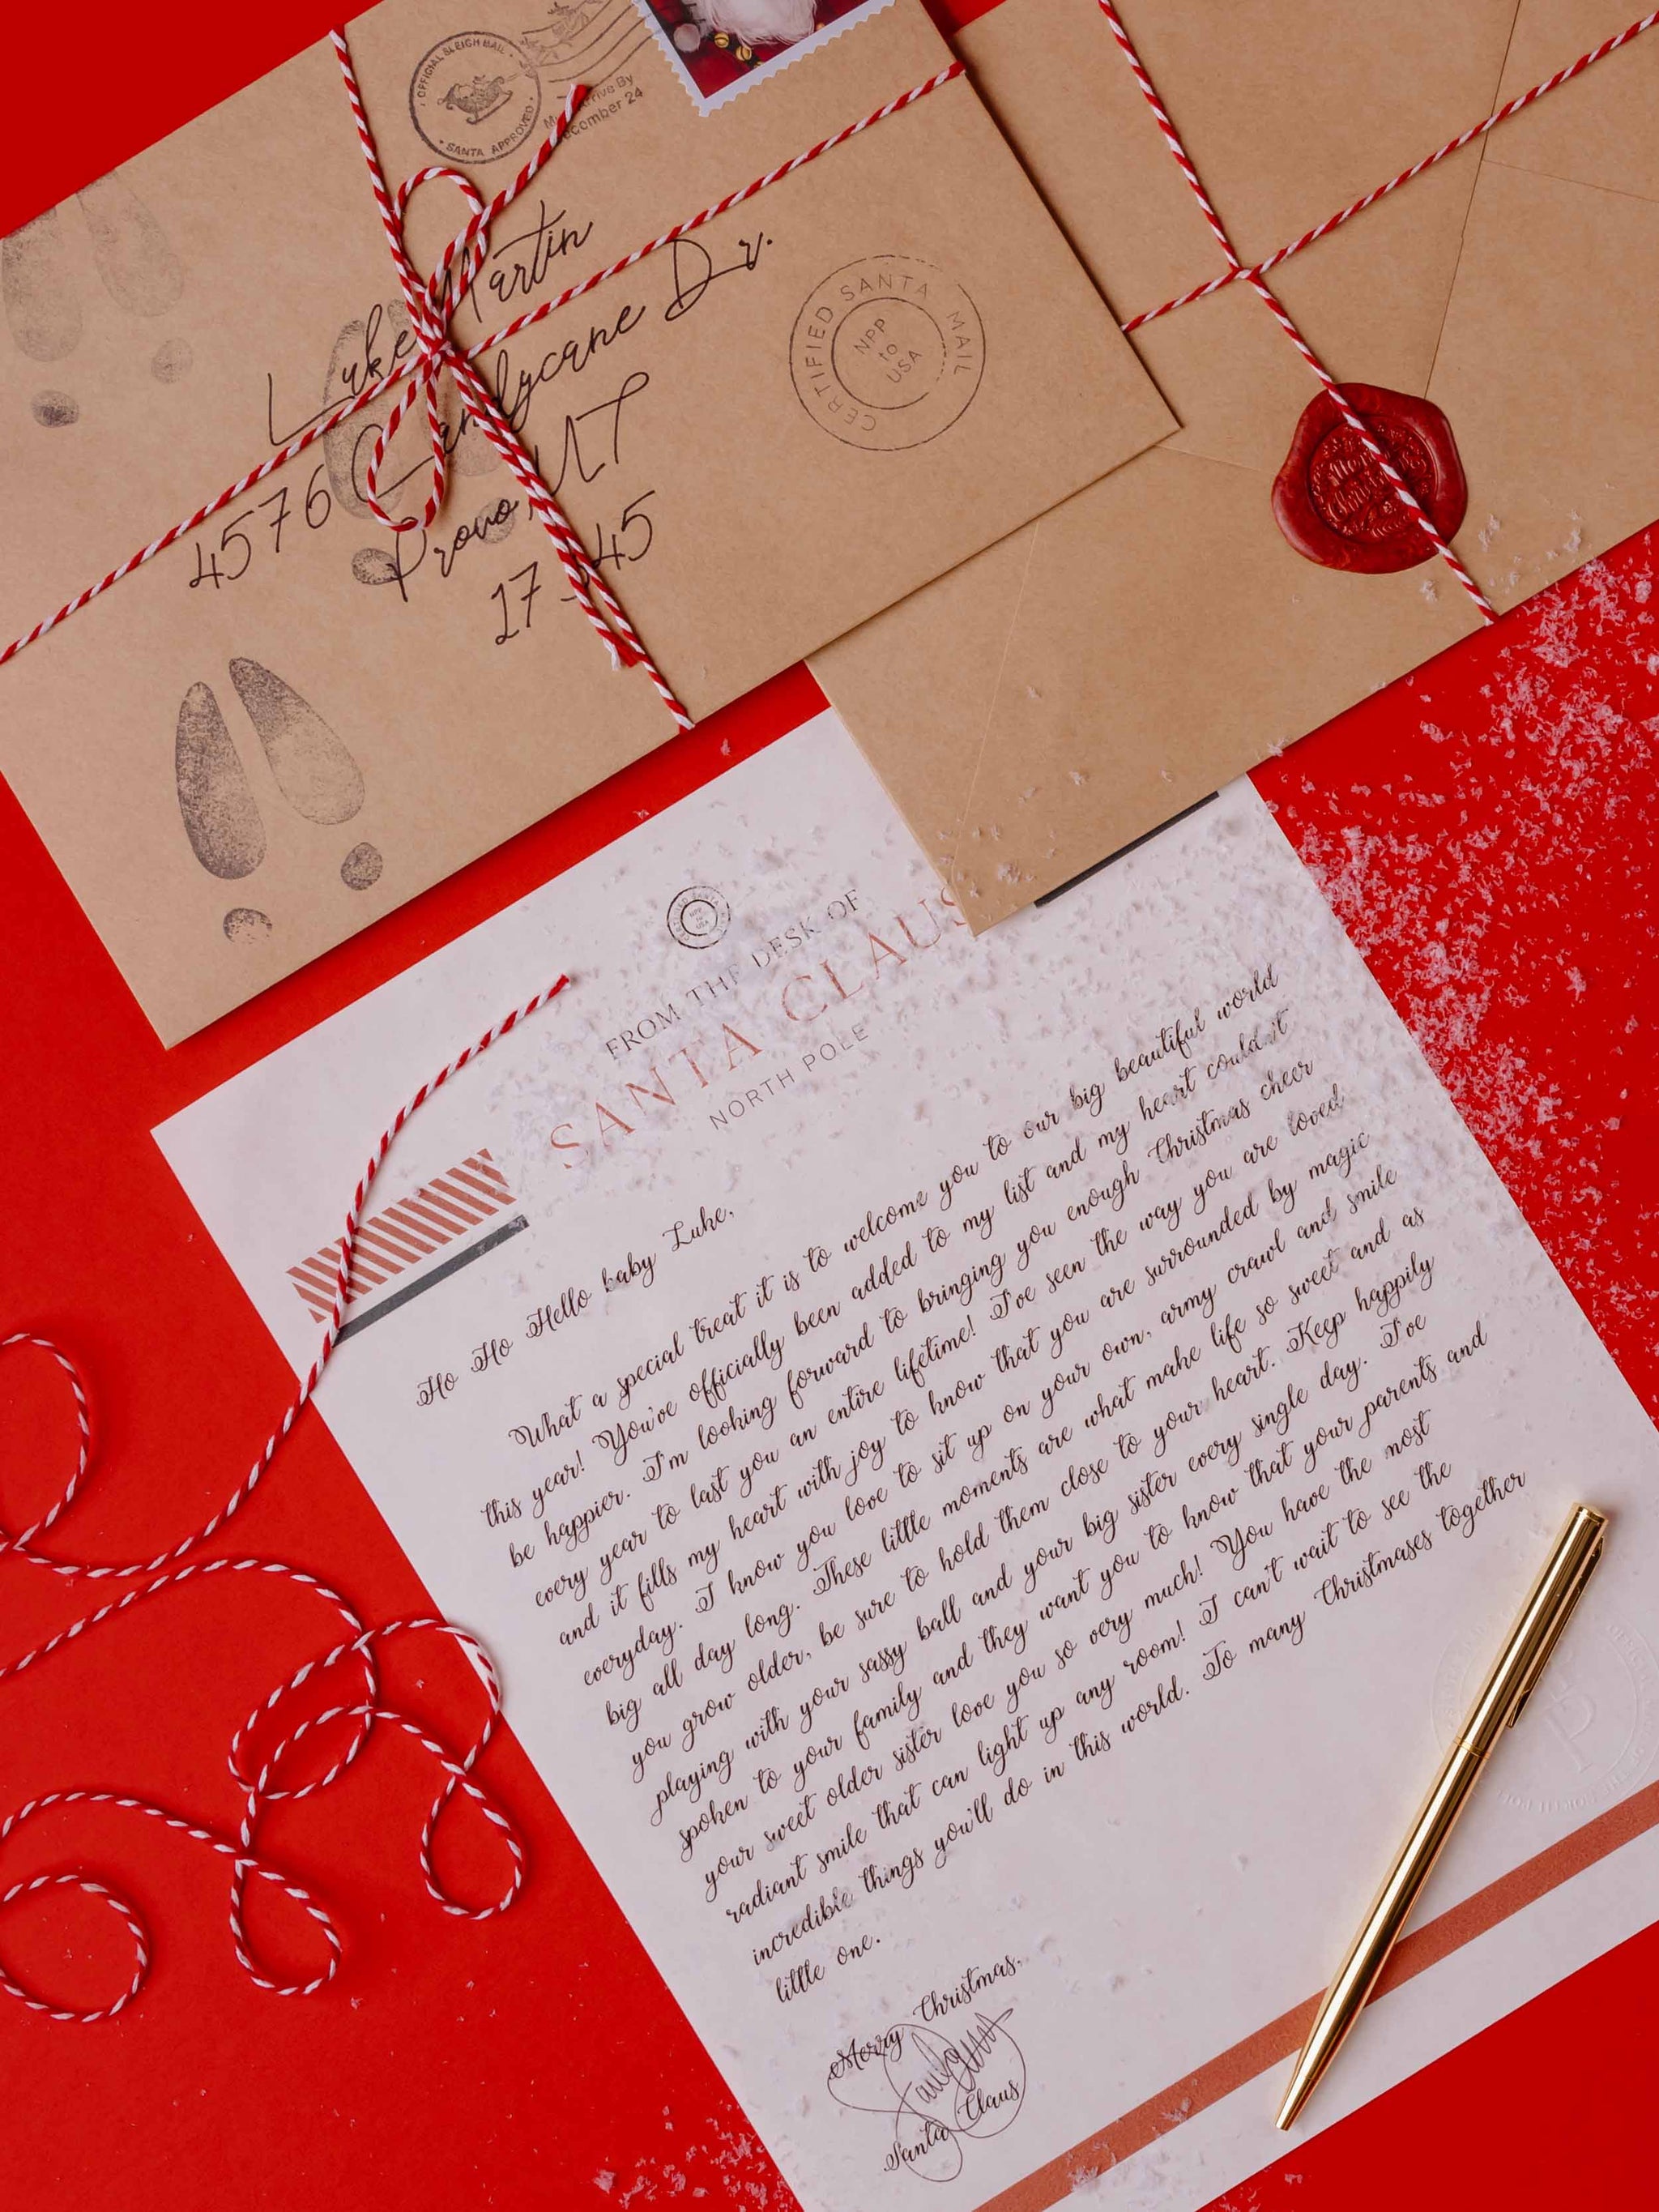 OFFICIAL SLEIGH MAIL
SANTA APPROVED
December 24
Luke Martin
4576 Candycane Dr.
Provo, UT
CERTIFIED SANTA MAIL
NPP
to
USA
FROM THE DESK OF
SANTA CLAUS
NORTH POLE
Ho Ho Hello baby Luke,
What a special treat it is to welcome you to our big beautiful world
this year! You've officially been added to my list and my heart could it
be happier. I'm looking forward to bringing you enough Christmas cheer
every year to last you an entire lifetime! I've seen the way you are loved
and it fills my heart with joy to know that you are surrounded by magic
everyday. I know you love to sit up on your own, army crawl and smile
big all day long. These little moments are what make life so sweet and as
you grow older, be sure to hold them close to your heart. Keep happily
playing with your sassy ball and your big sister every single day. I've
spoken to your family and they want you to know that your parents and
your sweet older sister love you so very much! You have the most
radiant smile that can light up any room! I can't wait to see the
incredible things you'll do in this world. To many Christmases together
little one.
Merry Christmas,
Santa Claus